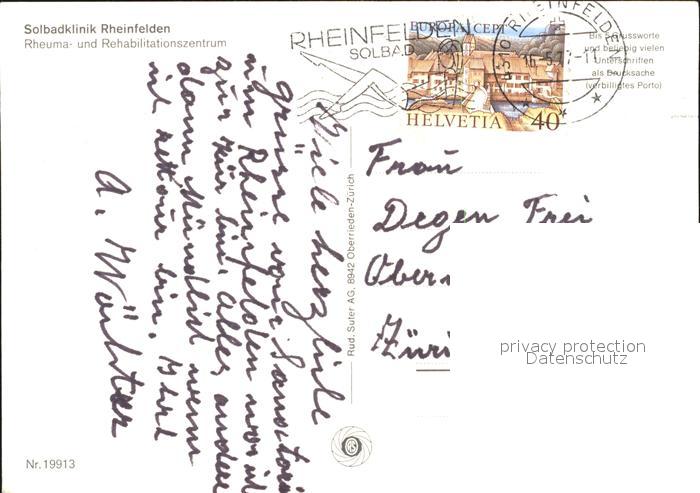 Solbadklinik Rheinfelden
Rheuma- und Rehabilitationszentrum
RHEINFELDEN
SOLBAD
EUROPA CEPT
HELVETIA 40
4310 RHEINFELDEN
Bis 5 Grussworte
und beliebig vielen
Unterschriften
als Drucksache
(verbilligtes Porto)
Viele herzliche
grüsse vom Sanatori
um Rheinfelden wo ich
zur Kur bin. Alles andere
dann Mündlich wenn
ich retour bin.
A. Wächter
Rud. Suter AG, 8942 Oberrieden-Zürich
Frau
Degen Frei
Ober
Züri
privacy protection
Datenschutz
Nr. 19913